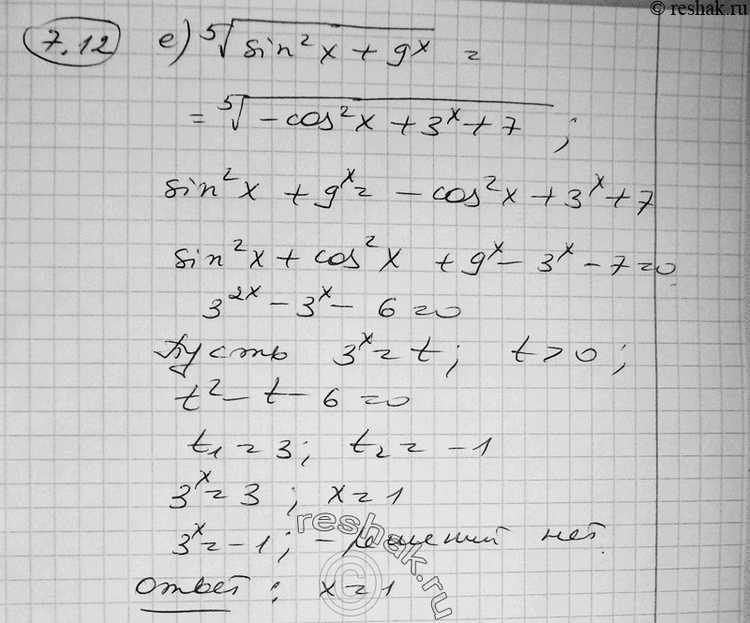 © reshak.ru
7.12 е) ⁵√(sin²x + 9ˣ) =
= ⁵√(-cos²x + 3ˣ + 7) ;
sin²x + 9ˣ = -cos²x + 3ˣ + 7
sin²x + cos²x + 9ˣ - 3ˣ - 7 = 0
3²ˣ - 3ˣ - 6 = 0
Пусть 3ˣ = t ; t > 0 ;
t² - t - 6 = 0
t₁ = 3 ; t₂ = -1
3ˣ = 3 ; x = 1
3ˣ = -1 ; - решений нет.
Ответ : x = 1
reshak.ru
©